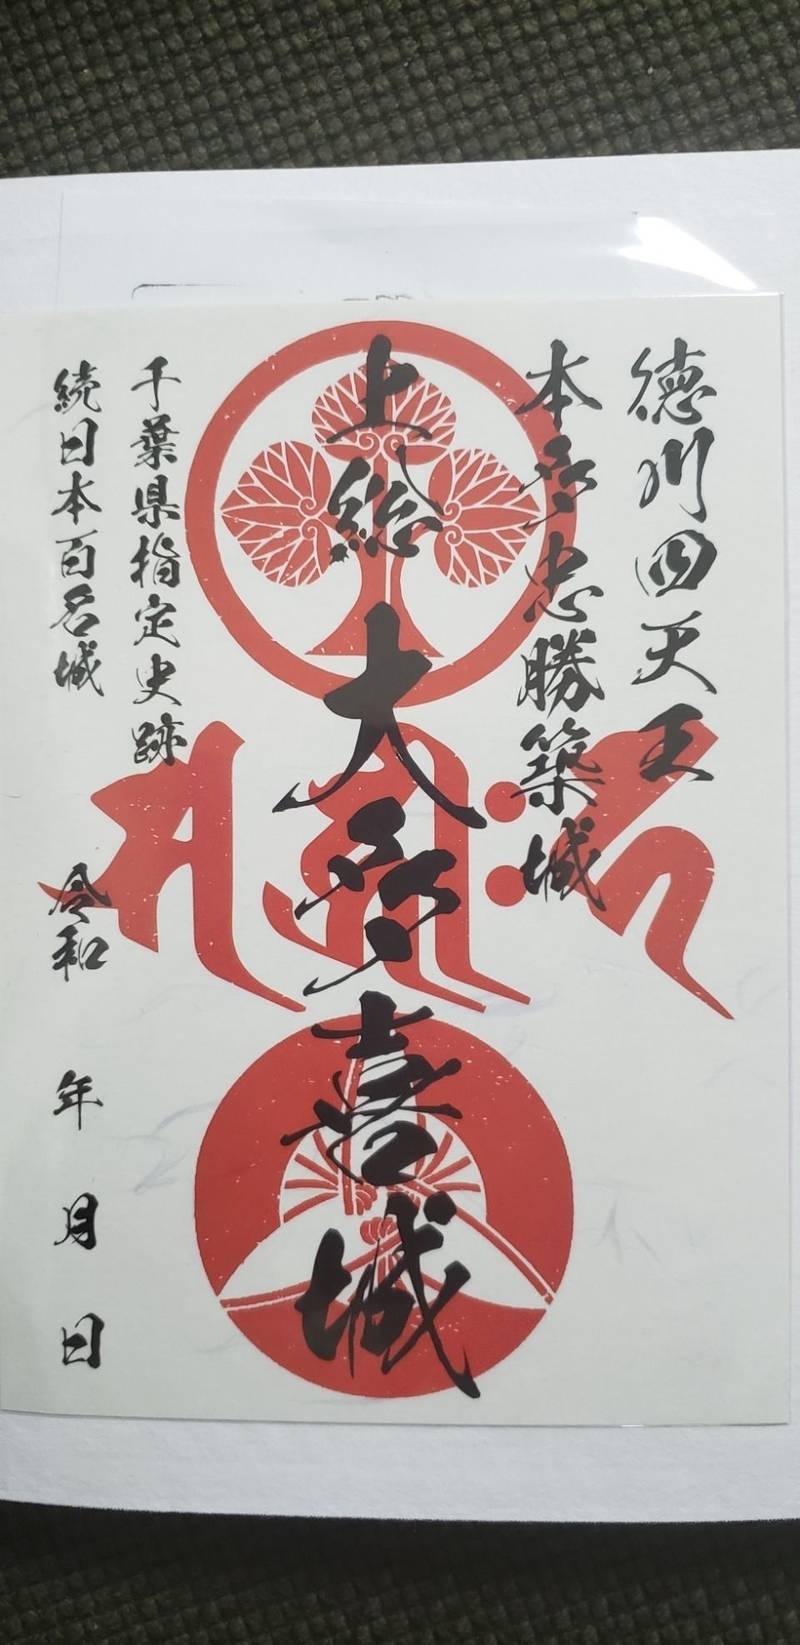 徳川四天王
本多忠勝築城
上総 大多喜城
千葉県指定史跡
続日本百名城
令和 年 月 日